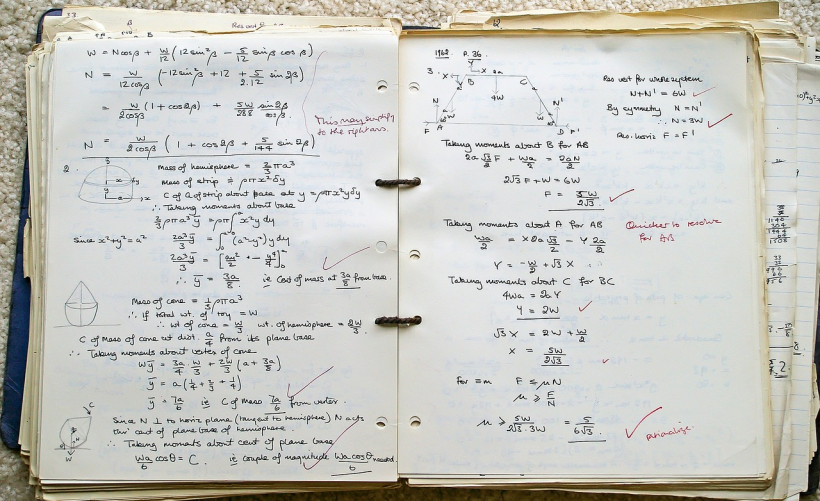 W = Ncosβ + W/12 (12sin²β − 5/12 sinβ cosβ)
N = W/12cosβ (−12sin²β + 12 + 5/2.12 sin2β)
= W/2cosβ (1 + cos2β) + 5W/288 sin2β/cosβ
This may simplify
to the right ans.
N = W/2cosβ (1 + cos2β + 5/144 sin2β)
2.
Mass of hemisphere = 2/3 πρa³
Mass of strip = ρπx²δy
C of G of strip about base at y = ρπx²yδy
∴ Taking moments about base
2/3 ρπa³ȳ = ρπ∫x²y dy
Since x²+y² = a²
2a³ȳ/3 = ∫(a²−y²)y dy
∴ ȳ = 3a/8 ie Cent of mass at 3a/8 from base.
Mass of cone = 1/3 ρπa³
∴ If total wt. of toy = W
∴ wt of cone = W/3 wt. of hemisphere = 2W/3
C of Mass of cone at dist. a/4 from its plane base
∴ Taking moments about vertex of cone
Wȳ = 3a/4 W/3 + 2W/3 (a + 3a/8)
ȳ = 7a/6 ie C of Mass 7a/6 from vertex.
Since N ⊥ to horiz plane (tangent to hemisphere) N acts
thro' cent of plane base of hemisphere.
∴ Taking moments about cent of plane base
Wa/6 cosθ = C. ie couple of magnitude Wa cosθ/6 needed.
1962 P. 36
3.
Res vert for whole system
N+N' = 6W
By symmetry N = N'
∴ N = 3W
Res. horiz F = F'
Taking moments about B for AB
2a √3/2 F + Wa/2 = 2aN/2
2√3 F + W = 6W
F = 5W/2√3
Taking moments about A for AB
Quicker to resolve
for AB
Wa/2 = X2a √3/2 − Y 2a/2
Y = −W/2 + √3 X
Taking moments about C for BC
4Wa = 2aY
Y = 2W
√3X = 2W + W/2
X = 5W/2√3
F ≤ μN
μ ≥ F/N
μ ≥ 5W/2√3.3W = 5/6√3
rationalise